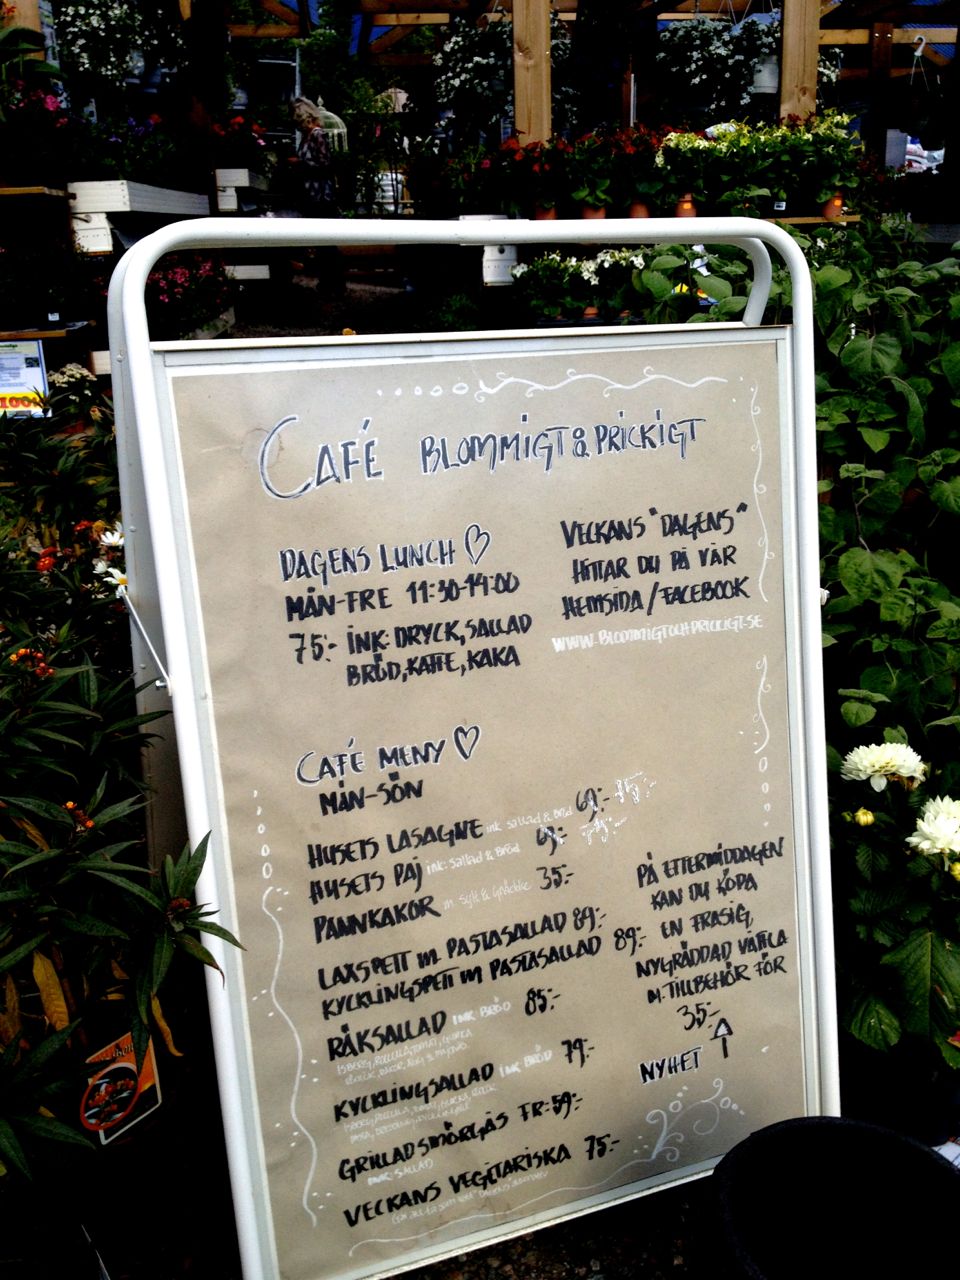 CAFÉ BLOMMIGT & PRICKIGT
DAGENS LUNCH
MÅN-FRE 11:30-14:00
75:- INK: DRYCK, SALLAD
BRÖD, KAFFE, KAKA
VECKANS "DAGENS"
HITTAR DU PÅ VÅR
HEMSIDA/FACEBOOK
WWW.BLOMMIGTOCHPRICKIGT.SE
CAFÉ MENY
MÅN-SÖN
HUSETS LASAGNE ink sallad & Bröd 69:-
HUSETS PAJ ink: sallad & Bröd 69:-
PANNKAKOR m. sylt & grädde 35:-
LAXSPETT m PASTASALLAD 89:-
KYCKLINGSPETT m PASTASALLAD 89:-
RÄKSALLAD INK BRÖD 85:-
KYCKLINGSALLAD INK BRÖD 79:-
GRILLADSMÖRGÅS FR: 59:-
INK: SALLAD
VECKANS VEGETARISKA 75:-
PÅ EFTERMIDDAGEN
KAN DU KÖPA
EN FRASIG,
NYGRÄDDAD VÅFFLA
M. TILLBEHÖR FÖR
35:-
NYHET